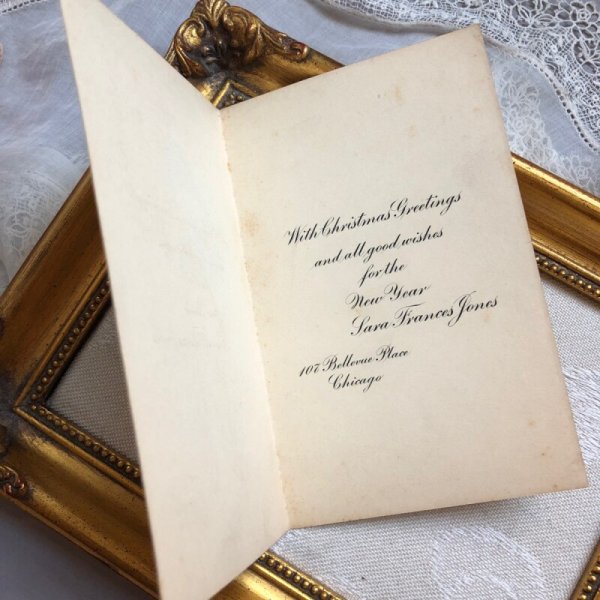 With Christmas Greetings
and all good wishes
for the
New Year
Sara Frances Jones
107 Bellevue Place
Chicago